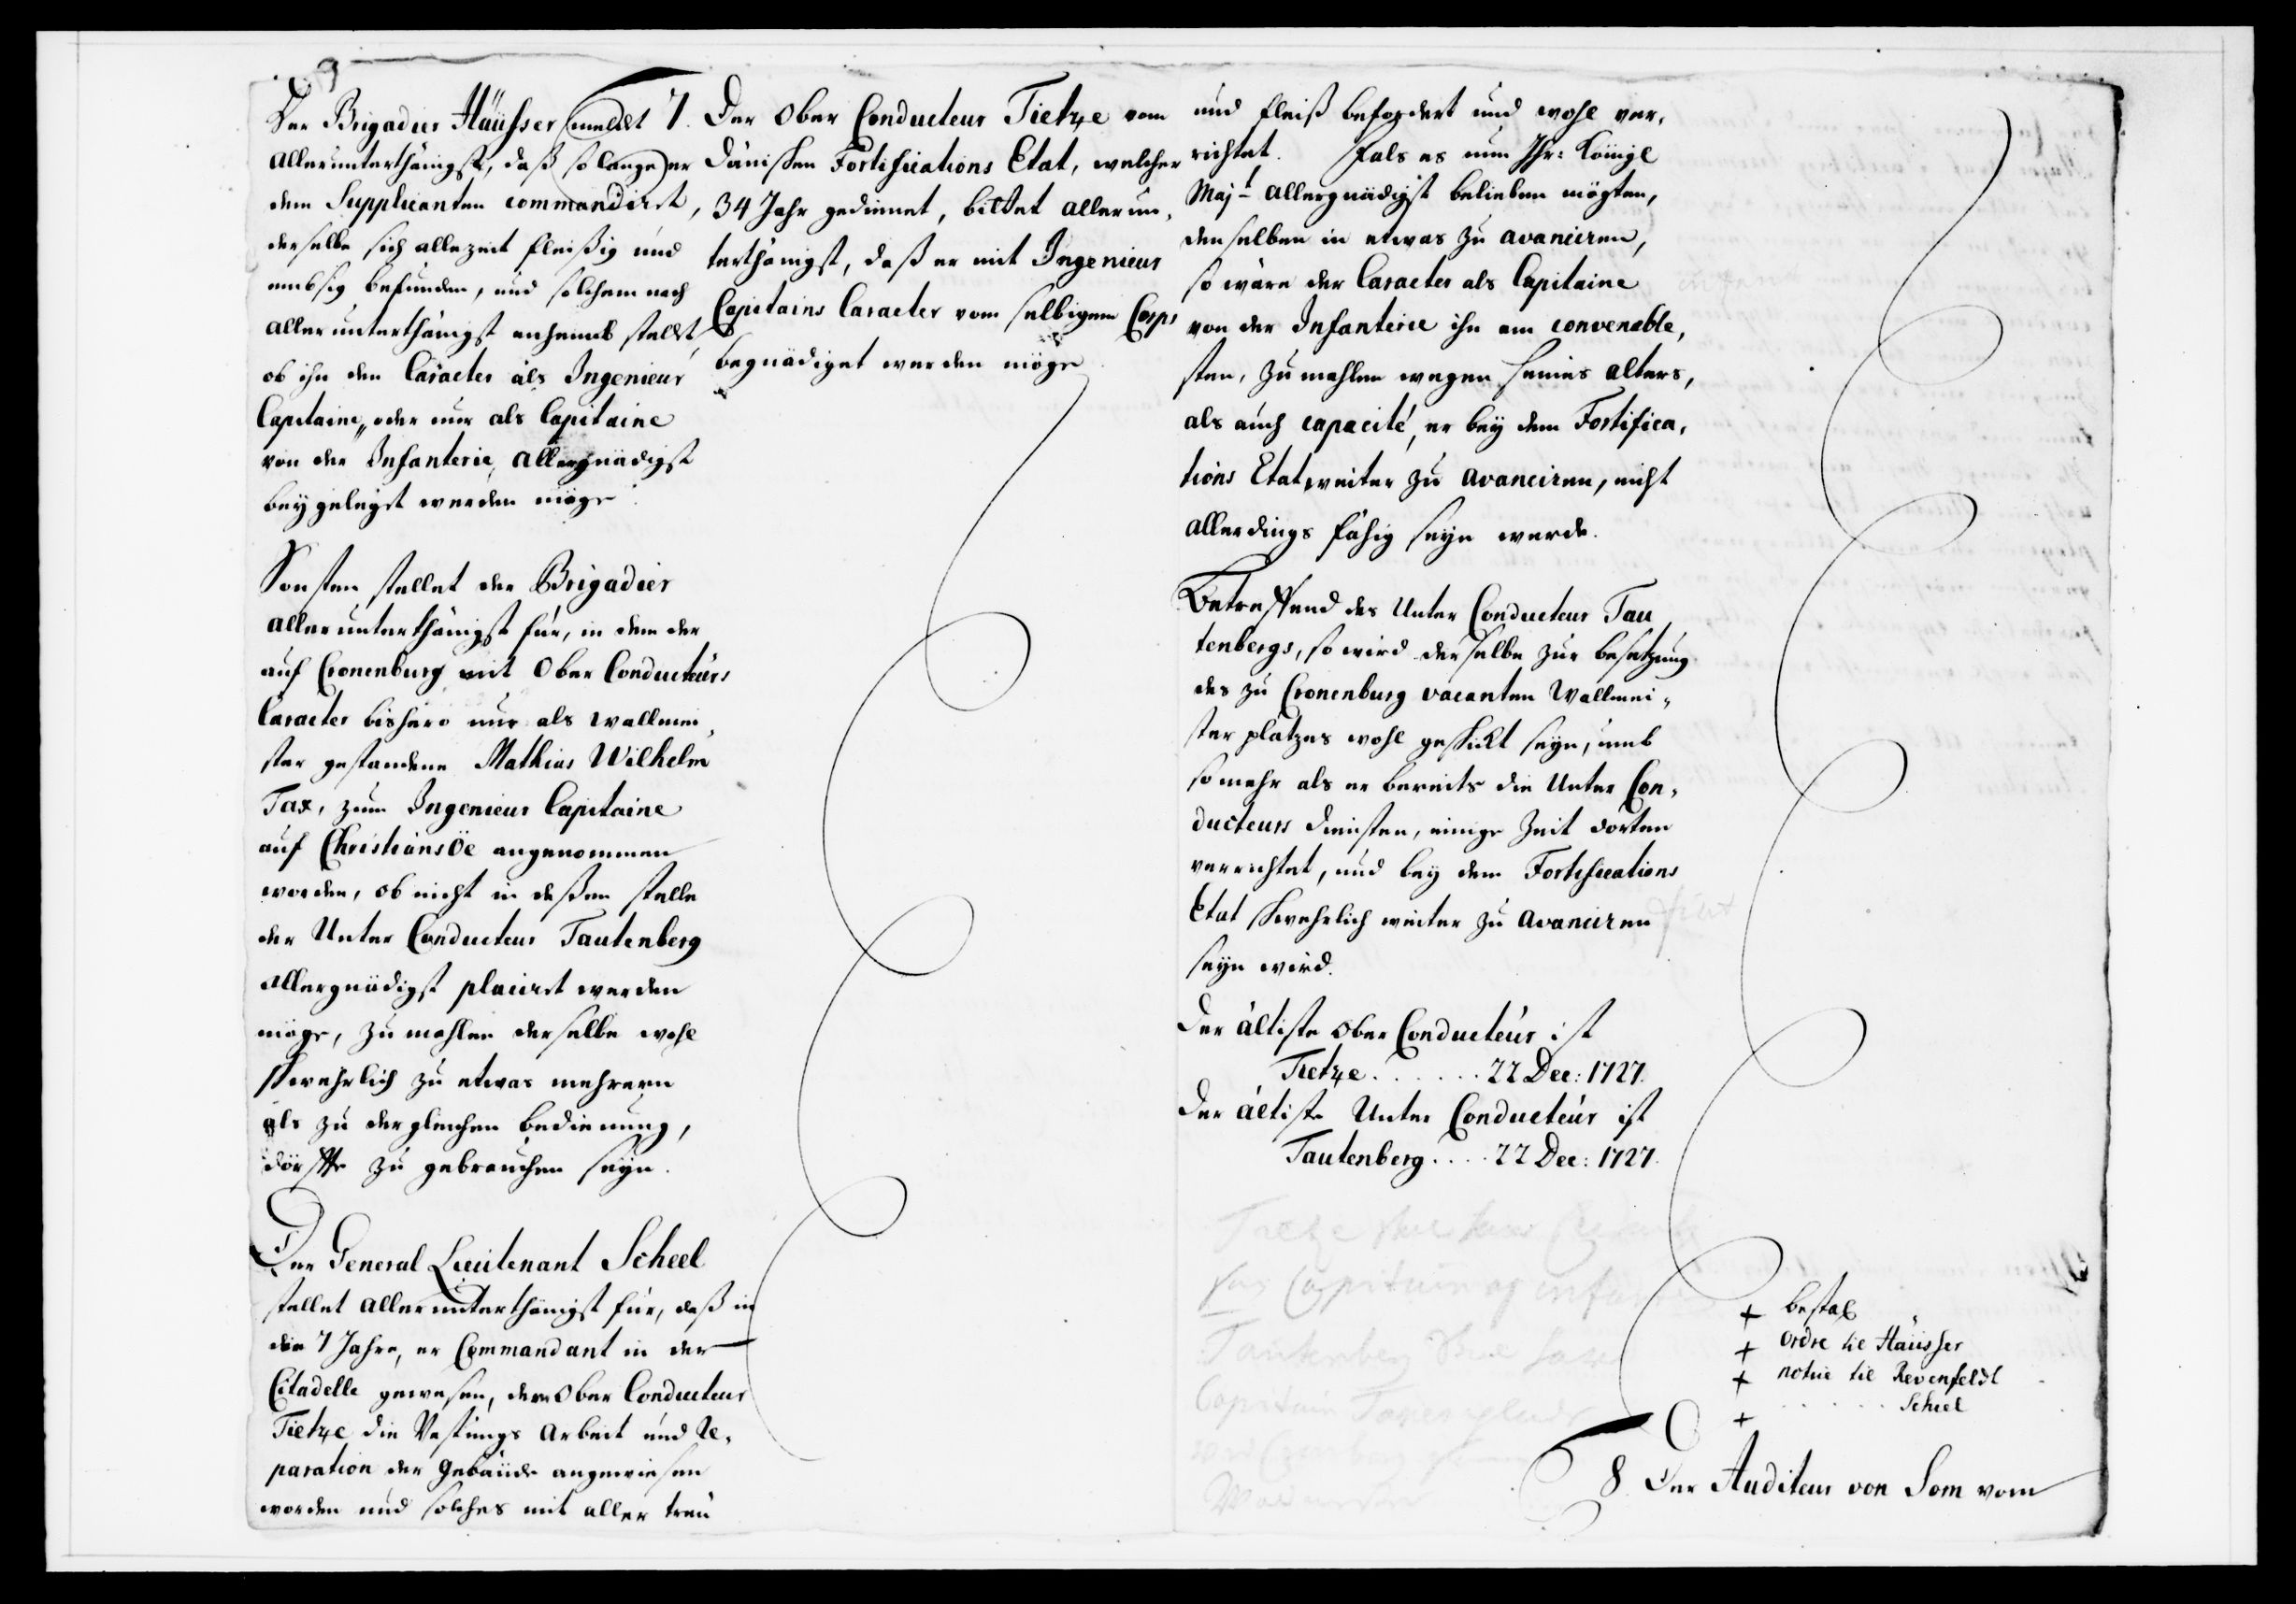 9
Der Brigadier Häusser meldet
allerunterthänigst, daß so lange er
dem Supplicanten commandiret,
derselbe sich allezeit fleißig und
embsig befunden, und solchem nach
allerunterthänigst anheimb stellet,
ob ihn den Caracter als Ingenieur
Capitaine, oder nur als Capitaine
von der Infanterie, allergnädigst
beygelegt werden möge.
Sonsten stellet der Brigadier
allerunterthänigst für, in dem der
auf Cronenburg mit Ober Conducteurs
Caracter bishero nur als Wallmei,
ster gestandene Mathias Wilhelm
Tax, zum Ingenieur Capitaine
auf Christians Öe angenommen
worden, ob nicht in deßen stelle
der Unter Conducteur Tautenberg
allergnädigst placiret werden
möge, zu mahlen derselbe wohl
schwehrlich zu etwas mehrern
als zu dergleichen bedienung,
dörffte zu gebrauchen seyn.
Der General Lieutenant Scheel
stellet allerunterthänigst für, daß in
die 7 Jahre, er Commandant in der
Citadelle gewesen, dem Ober Conducteur
Tietze die Vestungs Arbeit und Re,
paration der Gebäude angewiesen
worden und solches mit aller treu
7. Der Ober Conducteur Tietze vom
Dänischen Fortifications Etat, welcher
34 Jahr gedienet, bittet allerun,
terthänigst, daß er mit Ingenieur
Capitains Caracter vom selbigem Corps
begnädiget werden möge
und fleiß befordert und wohl ver,
richtet. Fals es nun Ihr: Königl
Majt allergnädigst belieben mögten,
denselben in etwas zu avanciren,
so wäre der Caracter als Capitaine
von der Infanterie ihn am convenable,
sten, zu mahlen wegen seines alters,
als auch capacité, er bey dem Fortifica,
tions Etat weiter zu avanciren, nicht
allerdings fähig seyn werde.
Betreffend des Unter Conducteur Tau
tenbergs, so wird derselbe zur besetzung
des zu Cronenburg vacanten Wallmei,
ster platzes wohl geschickt seyn, umb
so mehr als er bereits die Unter Con,
ducteurs diensten, einige Zeit dorten
verrichtet, und bey dem Fortifications
Etat schwehrlich weiter zu avanciren
seyn wird.
Der ältiste Ober Conducteur ist
Tietze . . . . . . 22 Dec: 1727.
Der ältiste Unter Conducteur ist
Tautenberg . . . . 22 Dec: 1727.
Tietze skal have
for Capitain af infant
Tautenberg skal have
Capitain
+ bestal
+ ordre til Häusser
+ notice til Revenfeldt
+ . . . . . . Scheel
8. Der Auditeur von Som vom